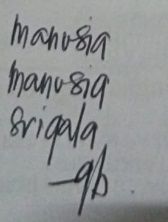 manusia
manusia
srigala
-gb